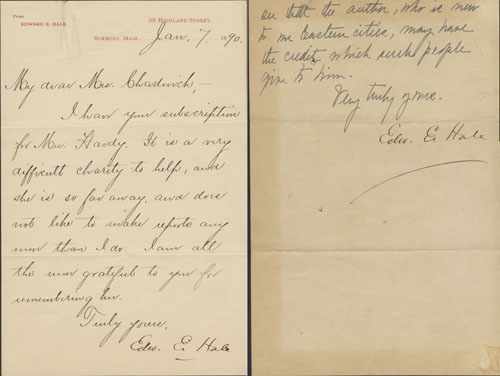 From
EDWARD E. HALE,
39 HIGHLAND STREET,
ROXBURY, MASS.
Jan. 7. 1890.
My dear Mrs. Chadwick,—
I have your subscription
for Mrs. Hardy. It is a very
difficult charity to help, and
she is so far away and does
not like to make reports any
more than I do. I am all
the more grateful to you for
remembering her.
Truly yours,
Edw. E. Hale
see that the author, who is new
to Eastern cities, may have
the credit which such people
give to him.
Very truly yours.
Edw. E. Hale